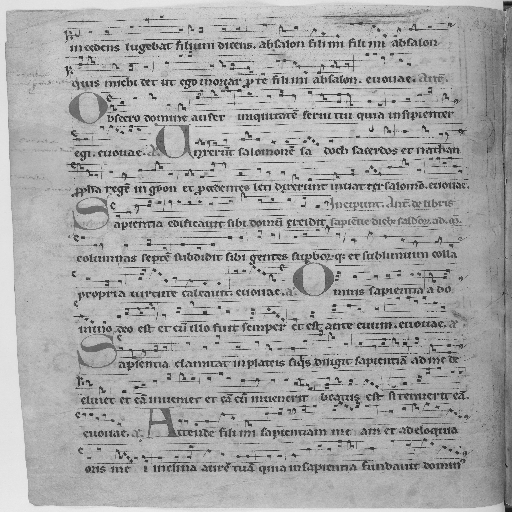 incedens lugebat filium dicens. absalon fili mi fili mi absalon
quis michi det ut ego moriar p te fili mi absalon. euouae. Ant.
Obsecro domine aufer iniquitatē serui tui quia insipienter
egi. euouae. a Unxerūt salomonē sa doch sacerdos et nathan
ppha regē in gyon et p cedentes leti dixerunt uiuat rex salomō. euouae.
Incipiunt. Ant. de libris
Sapientia edificauit sibi domū
columnas septē subdidit sibi gentes supbor q; et sublimium colla
propria uirtute calcauit. euouae. a. Omnis sapientia a do
mino deo est et cū illo fuit semper et est ante euum. euouae. a
Sapientia clamitat in plateis siqs diligit sapientiā ad me de
clinet et eā inueniet et eā cū inuenerit beatus est si tenuerit eā.
euouae. a. Attende fili mi sapientiam me am et ad eloquia
oris me i inclina aurē tuā quia in sapientia fundauit domin